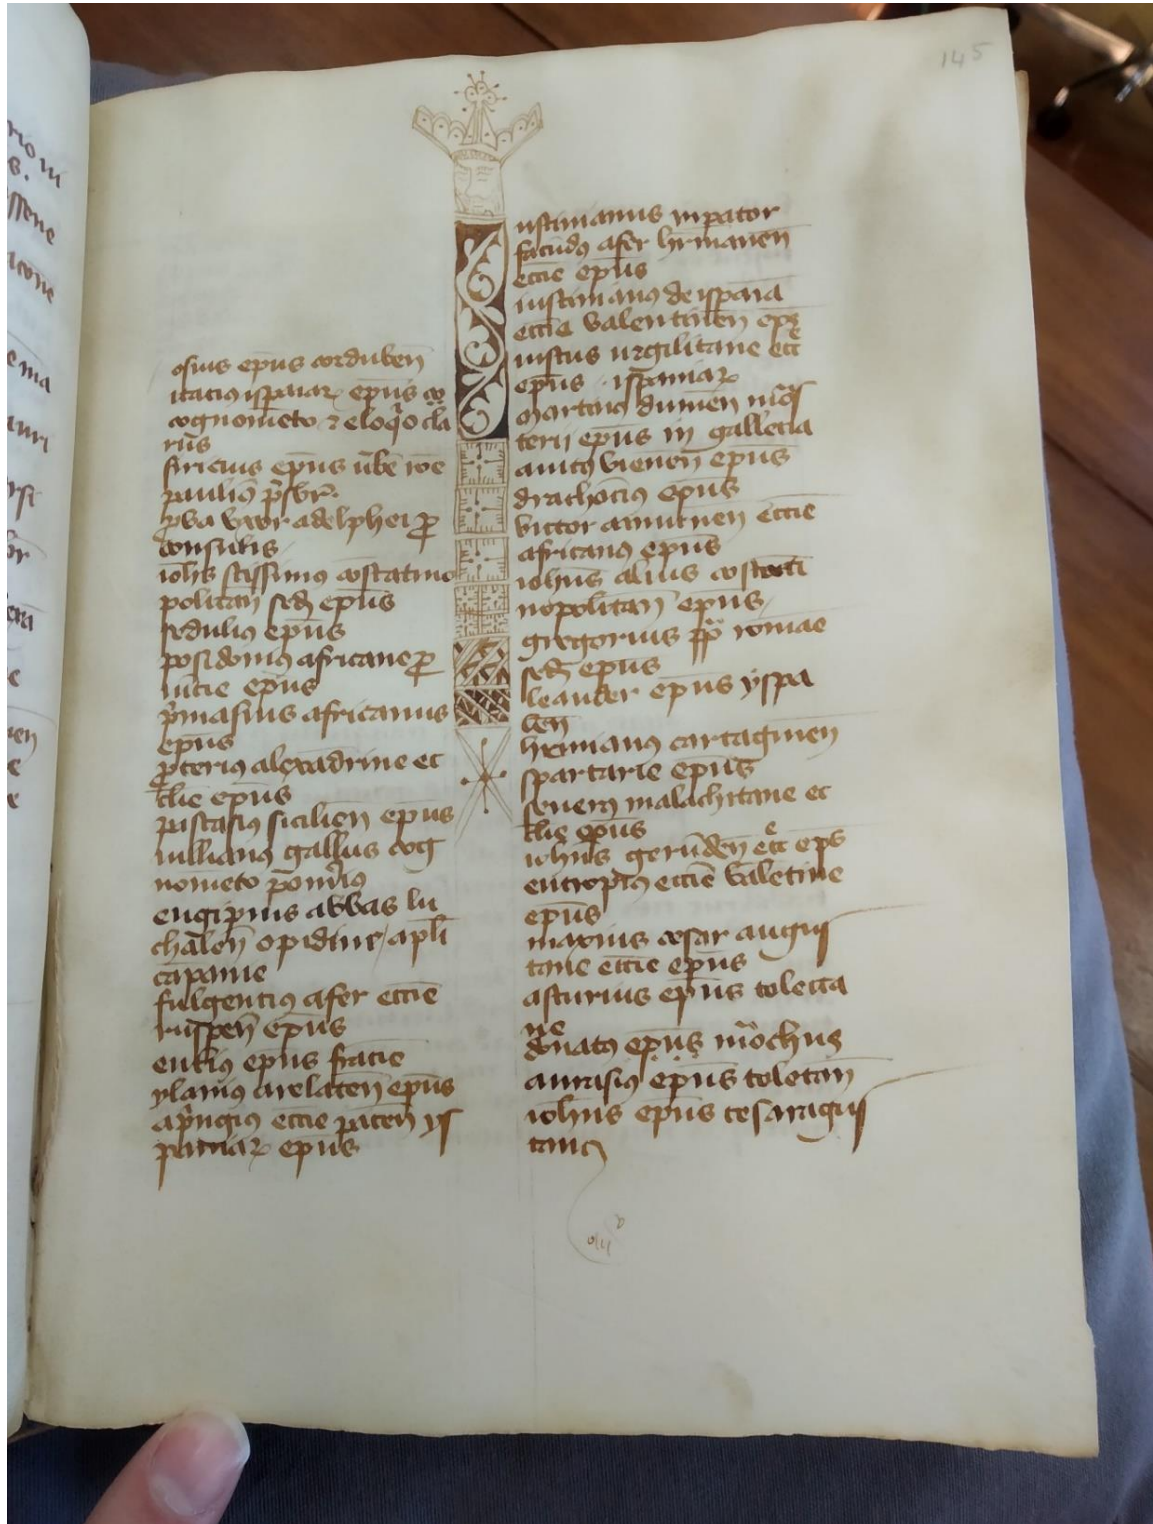 145
osius epūs corduben̄
itacius ispaiaꝝ epūs co
cognom̄eto ⁊ eloq̄o cla
rus
siricius epūs ūbe roē
paulin᷒ p̄sbr̄.
ꝓba uxor adelphei ꝓ
consulis
ioh̄is sc̄issimus cōstātino
politan̄ sed̄ epūs
sedulius epūs
posidonius africane ꝓ
uīcie epūs
p̄masius africanus
epūs
ꝓterius alexādrine ec
cl̄ie epūs
pascasius sicilien̄ epūs
iullianus gallus cog
nom̄eto pom̄ius
eugipius abbas lu
chalen̄ opidine / apl̄i
cāpanie
fulgentius afer eccīe
ruspen̄ epūs
epūs fracie
ylarius arelaten̄ epūs
apringius eccīe pacen̄ ys
paniaꝝ epūs
ustinianus inpator
facūdus afer hrmanen̄
eccīe epūs
iustinianus de ispaia
eccīe valentinen̄ epūs
iustus urgilitane ecc̄
epūs ispaniaꝝ
martinus dumien̄
terii epūs in gallecia
auitus vienen̄ epūs
drachocius epūs
victor tunnen̄ eccīe
africanus epūs
ioh̄nis alius
nopolitan̄ epūs
gregorius pp̄ romae
sed̄ epūs
leander epūs yspa
len̄
licinianus cartaginen̄
spartarie epūs
seuerus malachitane ec
cl̄ie epūs
ioh̄nis gerūden̄ ecc̄ epūs
eutropius eccīe valētine
epūs
maxius cesar augus
tane eccīe epūs
asturius epūs toleta
ne
donatus epūs mōchus
aurasius epūs toletan̄
ioh̄nis epūs cesaragus
tane